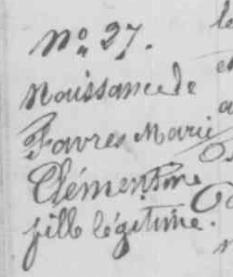 No 27.
Naissance de
Favres Marie
Clémentine
fille légitime.